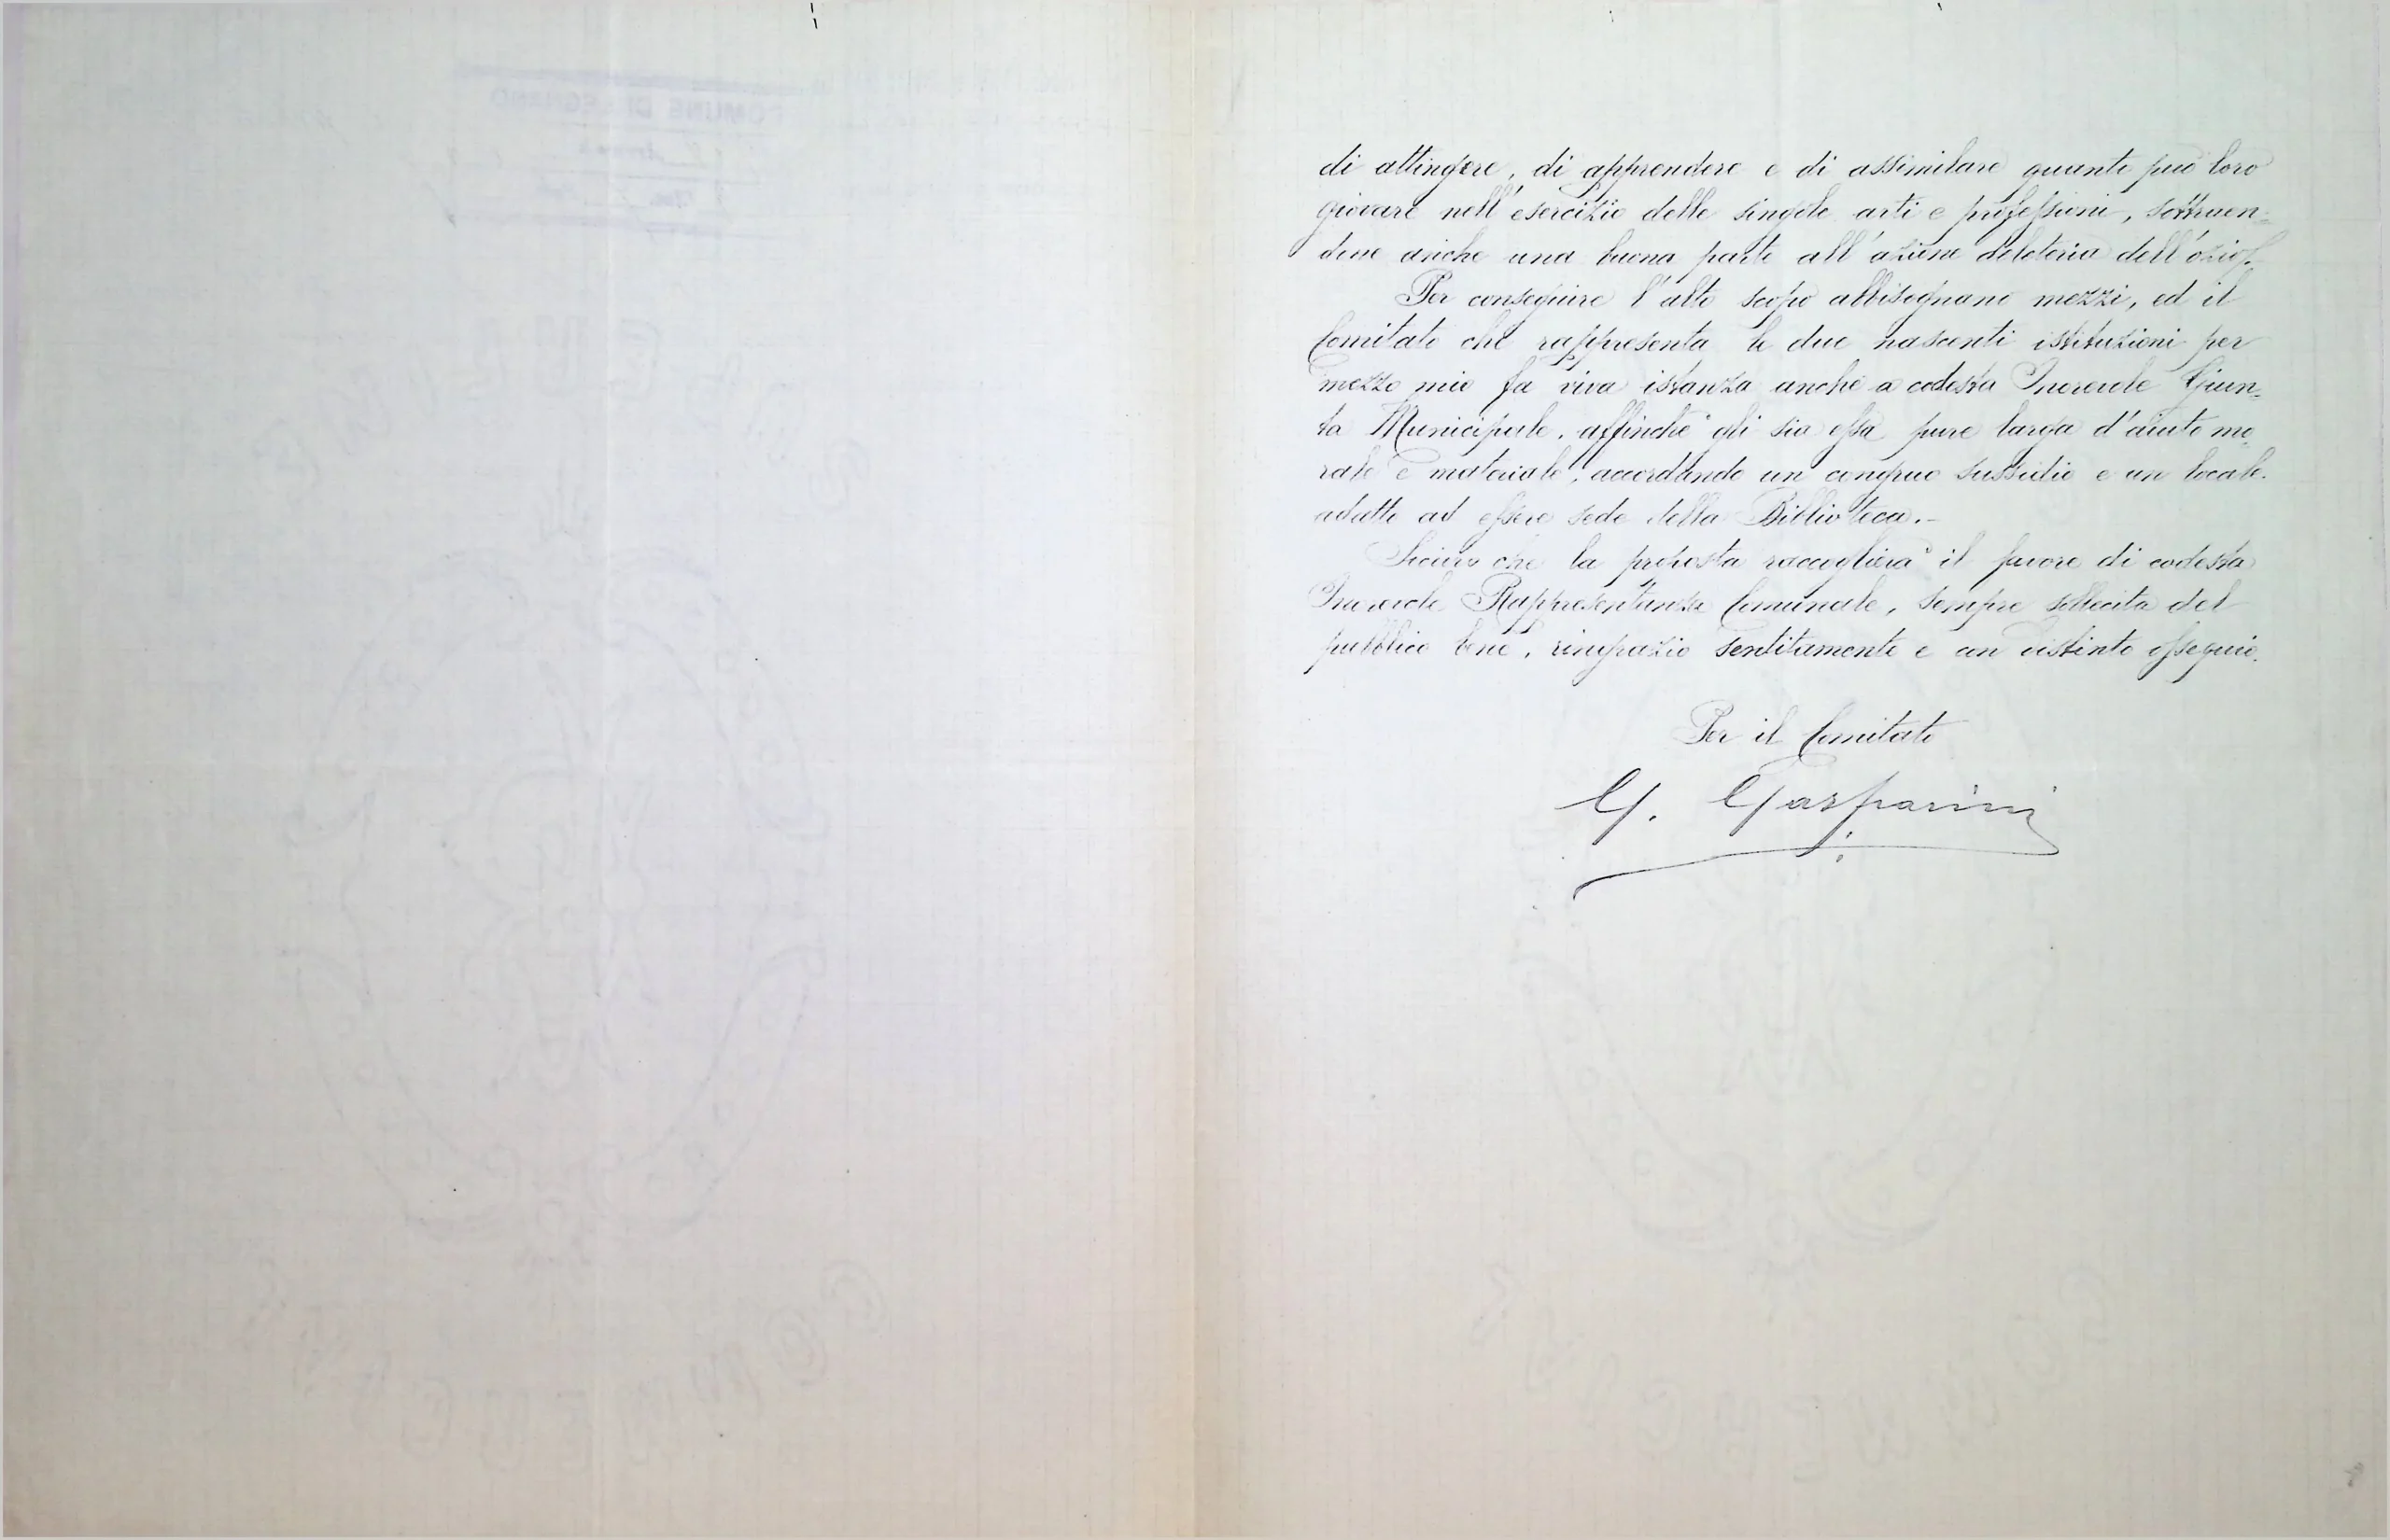 di attingere, di apprendere e di assimilare quanto può loro
giovare nell'esercizio delle singole arti e professioni, sottraen=
done anche una buona parte all'azione deleteria dell'ozio.
Per conseguire l'alto scopo abbisognano mezzi, ed il
Comitato che rappresenta le due nascenti istituzioni per
mezzo mio fa viva istanza anche a codesta Onorevole Giun=
ta Municipale, affinchè gli sia essa pure larga d'aiuto mo
rale e materiale, accordando un congruo sussidio e un locale
adatto ad essere sede della Biblioteca.-
Sicuro che la proposta raccoglierà il favore di codesta
Onorevole Rappresentanza Comunale, sempre sollecita del
pubblico bene, ringrazio sentitamente e con distinto ossequio.
Per il Comitato
G. Gasparini
COMUNE DI LEGNANO